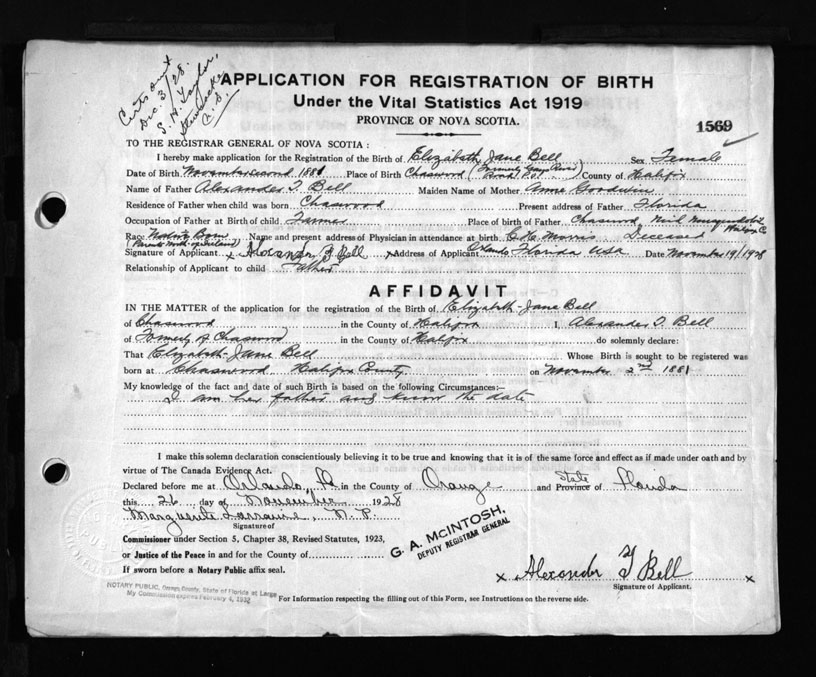 Certs out
Dec. 3/28.
S. H. Taylor,
Stewiacke
N. S.
APPLICATION FOR REGISTRATION OF BIRTH
Under the Vital Statistics Act 1919
PROVINCE OF NOVA SCOTIA.
1569
TO THE REGISTRAR GENERAL OF NOVA SCOTIA:
I hereby make application for the Registration of the Birth of Elizabeth Jane Bell Sex Female
Date of Birth November second 1881 Place of Birth Chaswood (Formerly Gays River Road P.O.) County of Halifax
Name of Father Alexander T. Bell Maiden Name of Mother Anne Goodwin
Residence of Father when child was born Chaswood Present address of Father Florida
Occupation of Father at Birth of child Farmer Place of birth of Father Chaswood, Halifax Co
Race Native Born Name and present address of Physician in attendance at birth Morris Deceased
(Parents North of Ireland)
Signature of Applicant x Alexander T Bell x Address of Applicant Orlando Florida USA Date November 19/1928
Relationship of Applicant to child Father
AFFIDAVIT
IN THE MATTER of the application for the registration of the Birth of Elizabeth Jane Bell
of Chaswood in the County of Halifax I, Alexander T. Bell
of Formerly of Chaswood in the County of Halifax do solemnly declare:
That Elizabeth Jane Bell Whose Birth is sought to be registered was
born at Chaswood, Halifax County on November 2nd 1881
My knowledge of the fact and date of such Birth is based on the following Circumstances:—
I am her father and know the date
I make this solemn declaration conscientiously believing it to be true and knowing that it is of the same force and effect as if made under oath and by
virtue of The Canada Evidence Act.
Declared before me at Orlando, Fla in the County of Orange and State Province of Florida
this 26 day of November 1928
Marguerite N. P.
Signature of
Commissioner under Section 5, Chapter 38, Revised Statutes, 1923,
or Justice of the Peace in and for the County of
If sworn before a Notary Public affix seal.
G. A. McINTOSH,
DEPUTY REGISTRAR GENERAL
x Alexander T Bell x
Signature of Applicant.
NOTARY PUBLIC, Orange County, State of Florida at Large
My Commission expires February 4, 1932
For Information respecting the filling out of this Form, see Instructions on the reverse side.